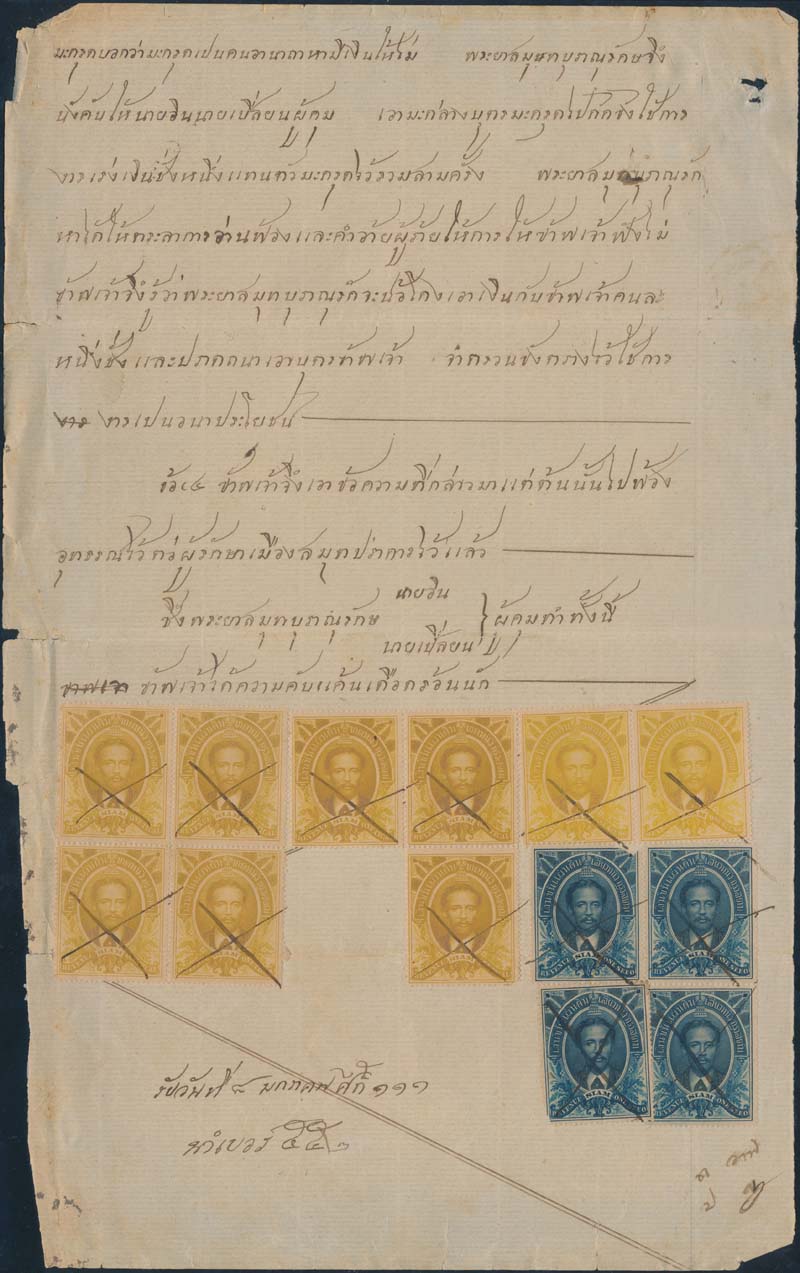 มะกรุดบอกว่ามะกรุดเปนคนอานาถาหามีเงินให้ไม่ พระยาสมุทบุรานุรักษจึง
บังคับให้นายอินนายเปลี่ยนผู้คุม เอามะกล่างบุตรมะกรุดไปกักขังใช้การ
งารเร่งเงินชั่งหนึ่งแทนตัวมะกรุดไว้รวมสามครั้ง พระยาสมุทบุรานุรัก
หาได้ให้ตระลาการอ่านฟ้องแลคำอ้าย ผู้ร้ายให้การให้ข้าพเจ้าฟังไม่
ข้าพเจ้าจึงรู้ว่าพระยาสมุทบุรานุรักจะฉ้อโกงเอาเงินกับข้าพเจ้าคนละ
หนึ่งชั่ง และปรารถนาเอาบุตรข้าพเจ้า จำตรวนขังกรางไว้ใช้การ
งารเปนอนาประโยชน์
ข้อ ๔ ข้าพเจ้าจึงเอาข้อความที่กล่าวมาแต่ต้นนั้นไปฟ้อง
อุทธรณ์ไว้ต่อผู้รักษาเมืองสมุทปราการไว้แล้ว
ซึ่งพระยาสมุทบุรานุรักษ นายอิน นายเปลี่ยน ผู้คุมทำทั้งนี้
ข้าพเจ้าได้ความคับแค้นเดือดร้อนนัก
SIAM
SIAM
SIAM
SIAM
SIAM
SIAM
SIAM
SIAM
SIAM
REVENUE SIAM
REVENUE SIAM
REVENUE SIAM
REVENUE SIAM
รับวันที่ ๘ มกราคม ศก ๑๑๑
นำเบอร์ ๕๕๒